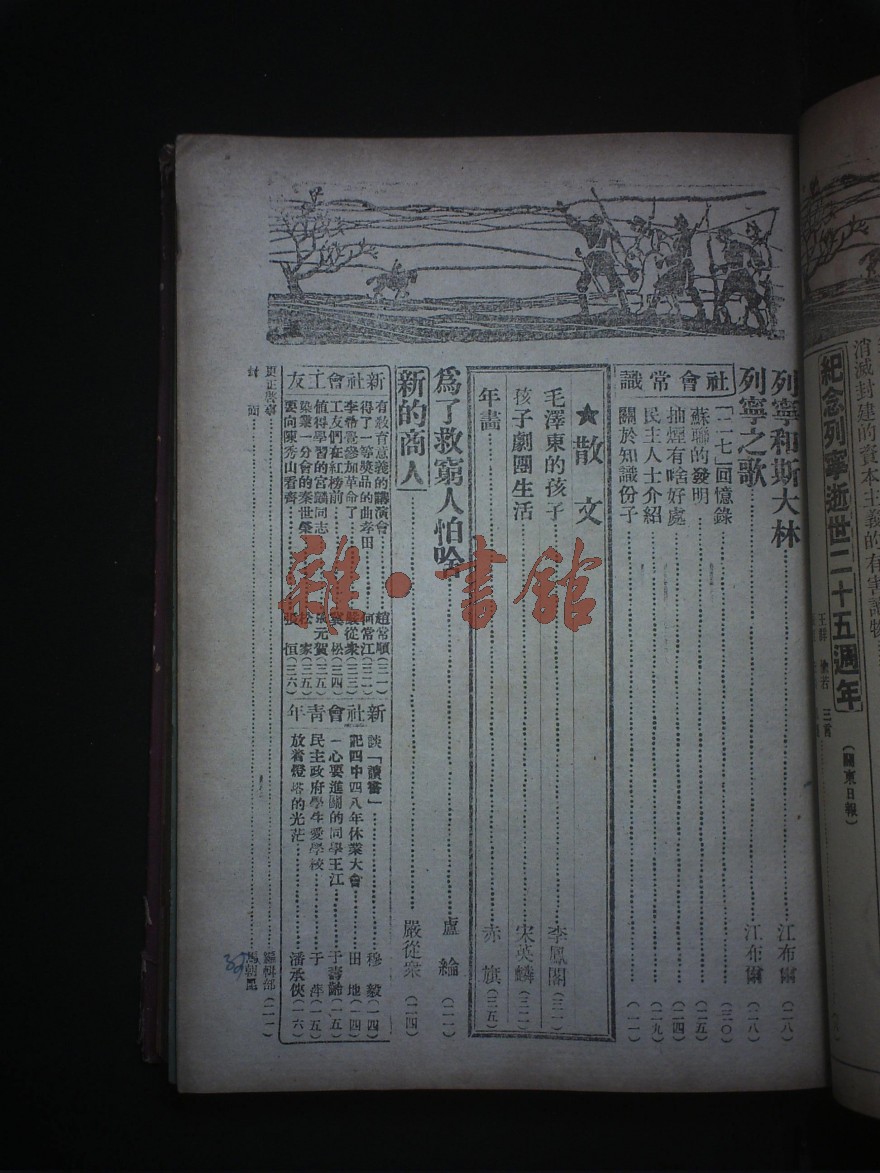 消滅封建的資本主義的有害讀物
紀念列寧逝世二十五週年
（關東日報）
列寧和斯大林 江布爾（二八）
列寧之歌 江布爾（二八）
社會常識
「二七」回憶錄（三〇）
蘇聯的發明（二五）
抽煙有啥好處（二四）
民主人士介紹（二九）
關於知識份子（一一）
★散文
毛澤東的孩子 李鳳閣（三一）
孩子劇團生活 宋英麟（三二）
年畫 赤旗（三五）
爲了救窮人怕啥 盧綸（二一）
新的商人 嚴從衆（二四）
新社會工友
有教育意義的講演會 趙常順（三一）
得了一等獎品的曲孝田 何常江（三二）
李希春參加革命了 嚴從衆（三三）
工友們在紅榜前 松（三四）
值得學習的宮麟同志 張元賀（三五）
染業一分會的秦世榮 松家（三五）
要向陳秀山看齊 張恒（三六）
新社會青年
談「讀書」 穆毅（一四）
記四中四八年休業大會 田地（一四）
一心要進關的同學王江 于壽齡（一五）
民主政府學生愛學校 于萍（一五）
放着燈塔的光茫 潘承俠（一六）
更正啓事 編輯部（二一）
封面
雜·書館